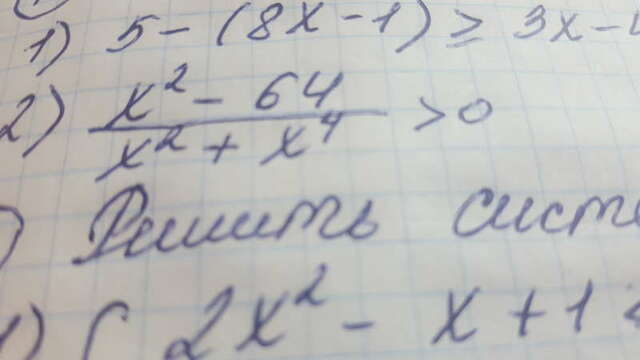 1) 5 - (8x - 1) ≥ 3x -
2) x² - 64
x² + x⁴ > 0
) Решить сист
1) { 2x² - x + 1 <